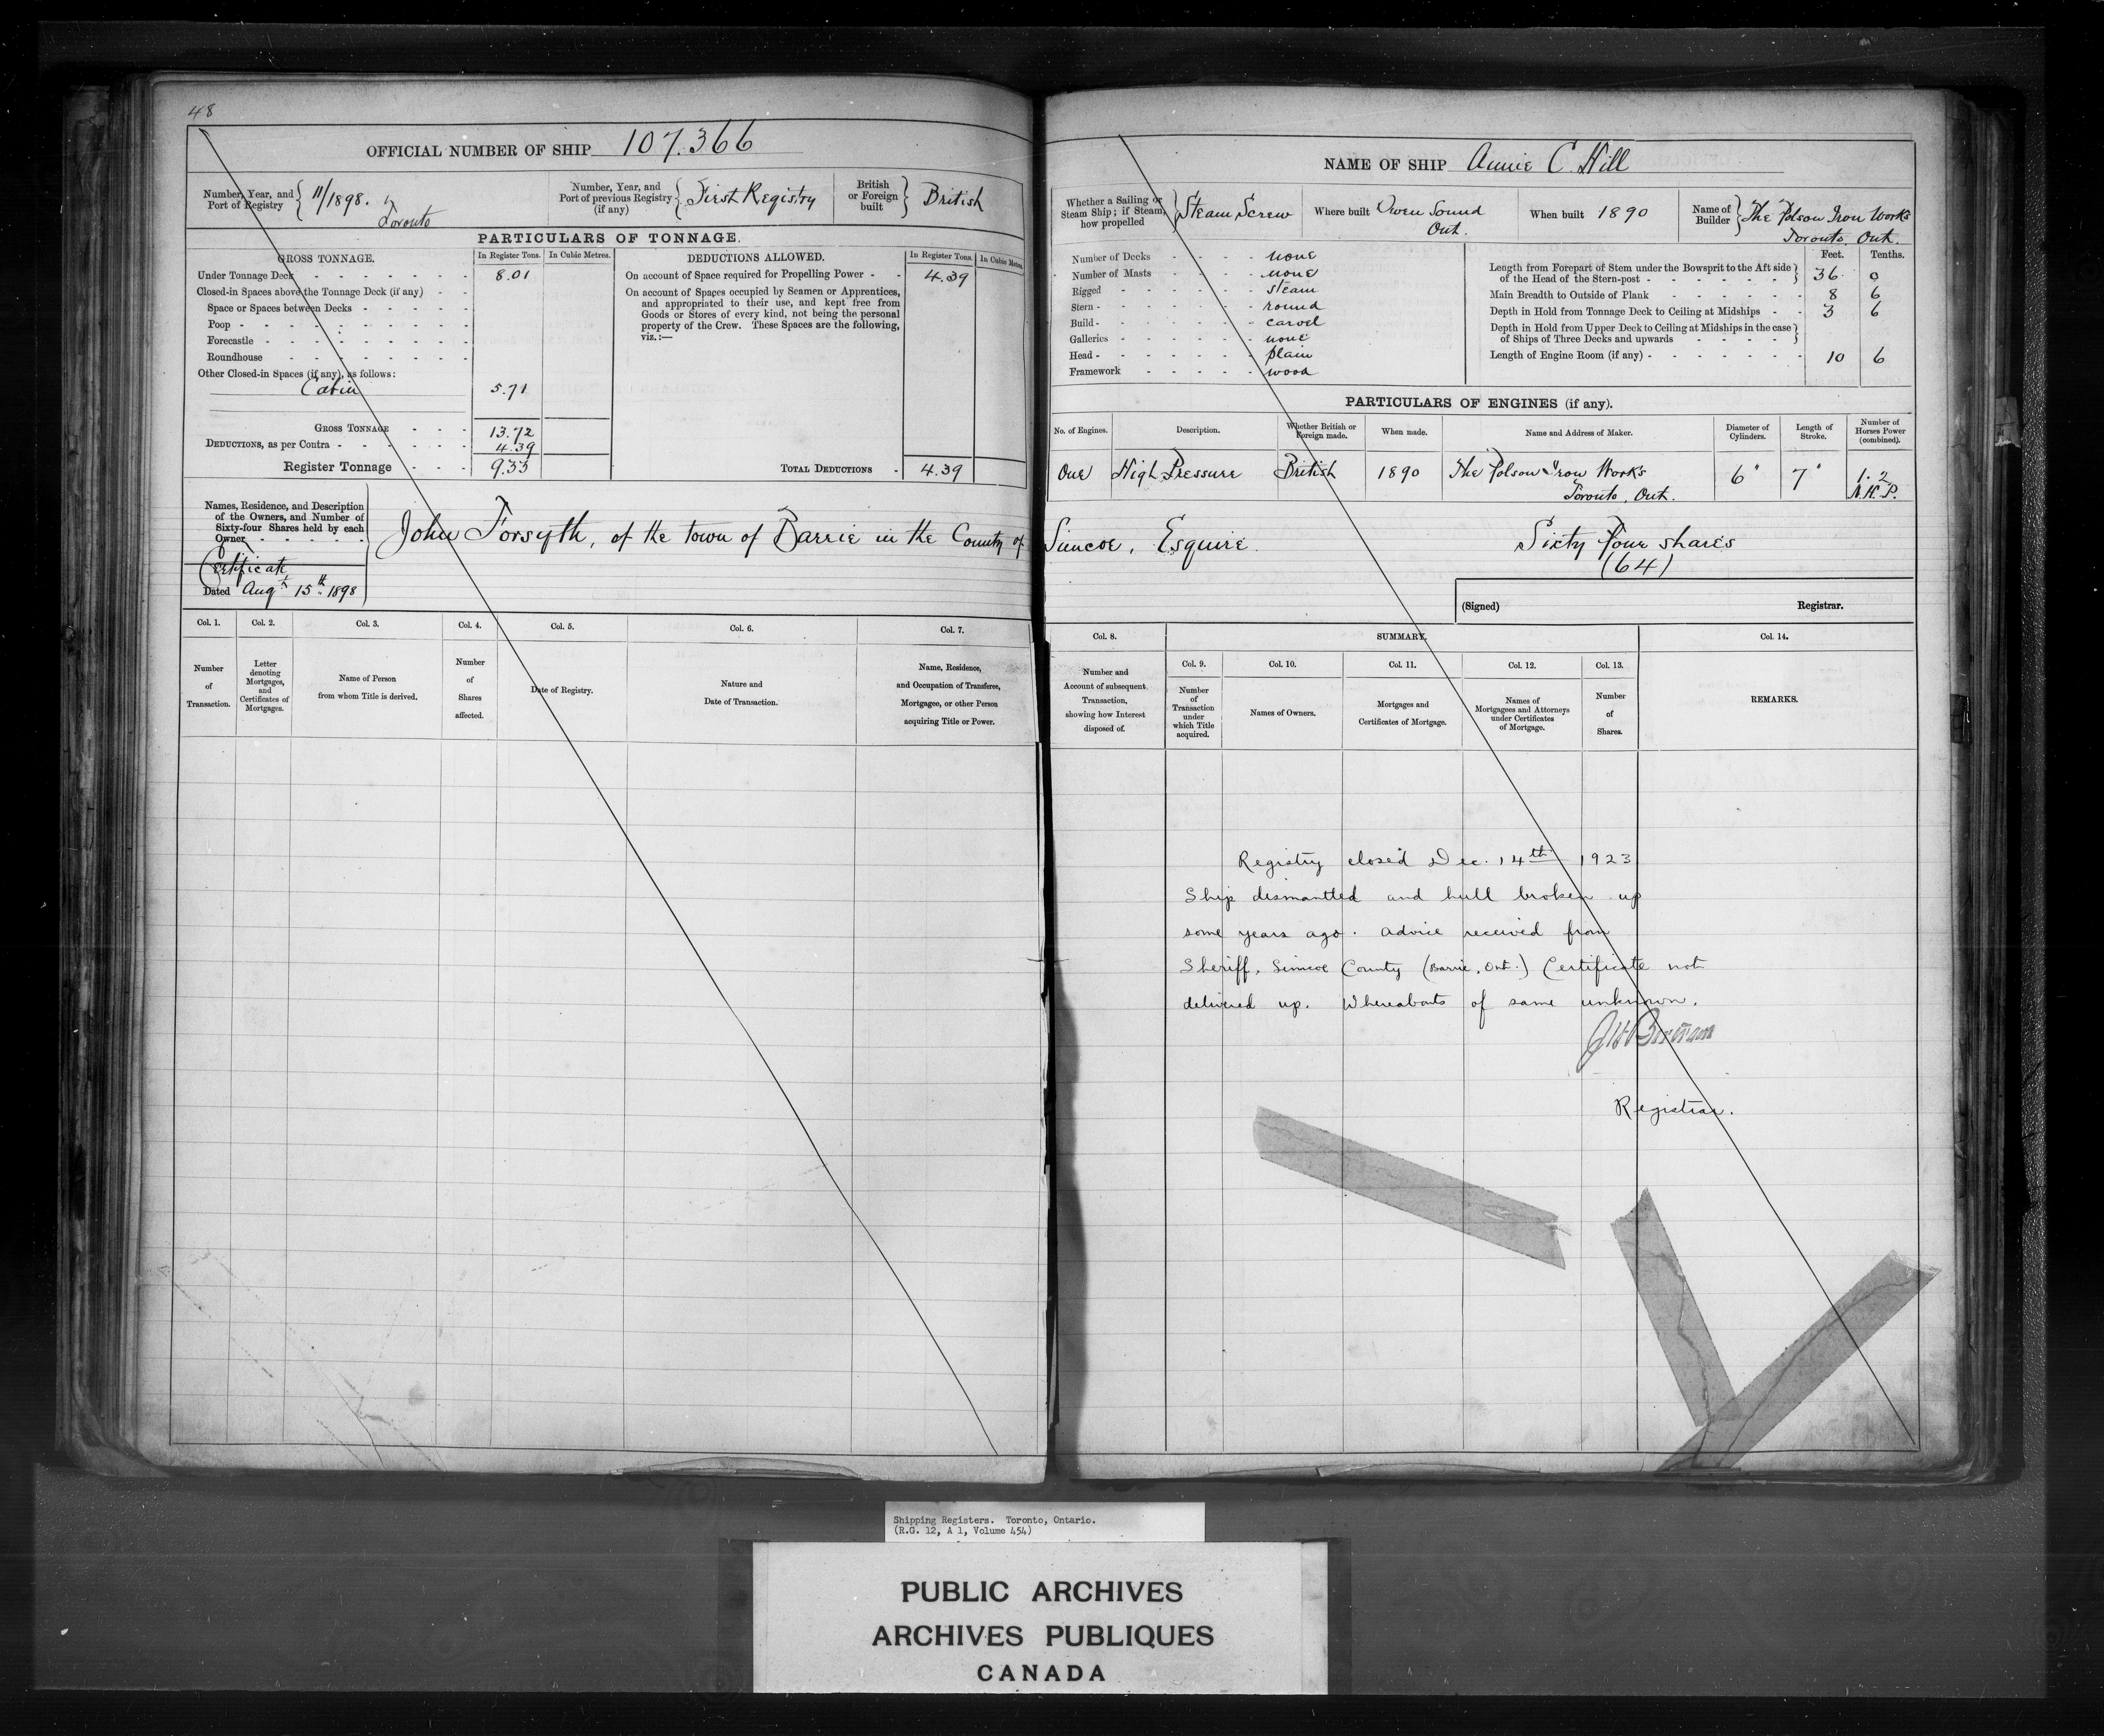 48
OFFICIAL NUMBER OF SHIP 107.366
Number, Year, and Port of Registry { 11/1898. Toronto
Number, Year, and Port of previous Registry (if any) { First Registry
British or Foreign built } British
PARTICULARS OF TONNAGE.
GROSS TONNAGE. In Register Tons. In Cubic Metres.
Under Tonnage Deck 8.01
Closed-in Spaces above the Tonnage Deck (if any)
Space or Spaces between Decks
Poop
Forecastle
Roundhouse
Other Closed-in Spaces (if any), as follows:
Cabin 5.71
GROSS TONNAGE 13.72
DEDUCTIONS, as per Contra 4.39
Register Tonnage 9.33
DEDUCTIONS ALLOWED. In Register Tons. In Cubic Metres.
On account of Space required for Propelling Power 4.39
On account of Spaces occupied by Seamen or Apprentices,
and appropriated to their use, and kept free from
Goods or Stores of every kind, not being the personal
property of the Crew. These Spaces are the following,
viz.:—
TOTAL DEDUCTIONS 4.39
Names, Residence, and Description
of the Owners, and Number of
Sixty-four Shares held by each
Owner
Certificate
Dated Augt 15th 1898
John Forsyth, of the town of Barrie in the County of Simcoe, Esquire. Sixty four shares
(64)
Col. 1. Col. 2. Col. 3. Col. 4. Col. 5. Col. 6. Col. 7.
Number of Transaction.
Letter denoting Mortgages, and Certificates of Mortgages.
Name of Person from whom Title is derived.
Number of Shares affected.
Date of Registry.
Nature and Date of Transaction.
Name, Residence, and Occupation of Transferee, Mortgagee, or other Person acquiring Title or Power.
NAME OF SHIP Annie C. Hill
Whether a Sailing or Steam Ship; if Steam, how propelled } Steam Screw
Where built Owen Sound Ont.
When built 1890
Name of Builder } The Polson Iron Works Toronto, Ont.
Number of Decks none
Number of Masts none
Rigged steam
Stern round
Build carvel
Galleries none
Head plain
Framework wood
Feet. Tenths.
Length from Forepart of Stem under the Bowsprit to the Aft side of the Head of the Stern-post 36 0
Main Breadth to Outside of Plank 8 6
Depth in Hold from Tonnage Deck to Ceiling at Midships 3 6
Depth in Hold from Upper Deck to Ceiling at Midships in the case of Ships of Three Decks and upwards
Length of Engine Room (if any) 10 6
PARTICULARS OF ENGINES (if any).
No. of Engines. Description. Whether British or Foreign made. When made. Name and Address of Maker. Diameter of Cylinders. Length of Stroke. Number of Horses Power (combined).
One High Pressure British 1890 The Polson Iron Works Toronto, Ont. 6" 7" 1.2 N.H.P.
(Signed) Registrar.
Col. 8. SUMMARY. Col. 14.
Col. 9. Col. 10. Col. 11. Col. 12. Col. 13.
Number and Account of subsequent Transaction, showing how Interest disposed of.
Number of Transaction under which Title acquired.
Names of Owners.
Mortgages and Certificates of Mortgage.
Names of Mortgagees and Attorneys under Certificates of Mortgage.
Number of Shares.
REMARKS.
Registry closed Dec. 14th 1923
Ship dismantled and hull broken up
some years ago. Advice received from
Sheriff, Simcoe County (Barrie, Ont.) Certificate not
delivered up. Whereabouts of same unknown.
Registrar.
Shipping Registers. Toronto, Ontario.
(R.G. 12, A 1, Volume 454)
PUBLIC ARCHIVES
ARCHIVES PUBLIQUES
CANADA